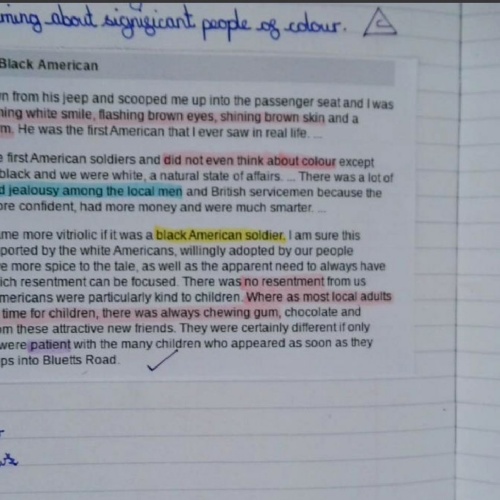 ning about significant people of colour.
Black American
n from his jeep and scooped me up into the passenger seat and I was
ning white smile, flashing brown eyes, shining brown skin and a
m. He was the first American that I ever saw in real life. ...
e first American soldiers and did not even think about colour except
black and we were white, a natural state of affairs. ... There was a lot of
d jealousy among the local men and British servicemen because the
re confident, had more money and were much smarter. ...
me more vitriolic if it was a black American soldier. I am sure this
ported by the white Americans, willingly adopted by our people
e more spice to the tale, as well as the apparent need to always have
ich resentment can be focused. There was no resentment from us
mericans were particularly kind to children. Where as most local adults
time for children, there was always chewing gum, chocolate and
om these attractive new friends. They were certainly different if only
were patient with the many children who appeared as soon as they
ps into Bluetts Road.